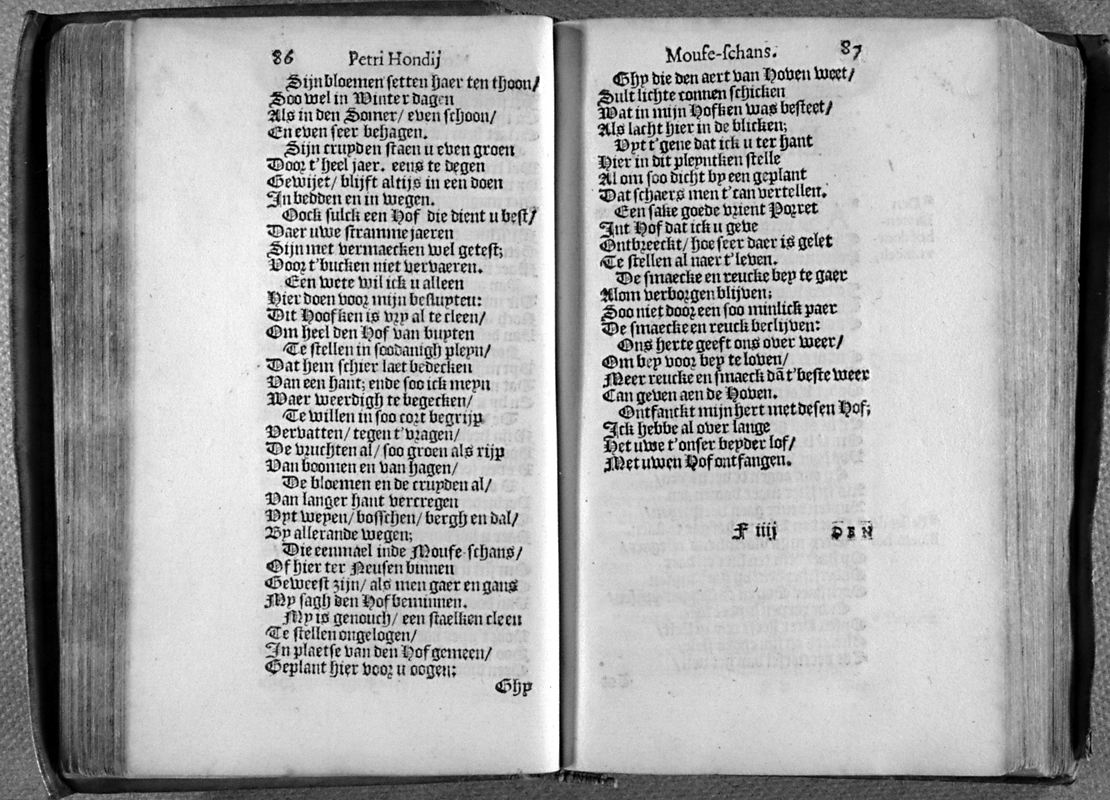 86 Petri Hondij
Sijn bloemen setten haer ten thoon/
Soo wel in Winter dagen
Als in den Somer/ even schoon/
En even seer behagen.
Sijn cruyden staen u even groen
Door t'heel jaer. eens te degen
Gewijet/ blijft altijs in een doen
In bedden en in wegen.
Oock sulck een Hof die dient u best/
Daer uwe stramme jaeren
Sijn met vermaecken wel getest;
Voor t'bucken niet vervaeren.
Een wete wil ick u alleen
Hier doen voor mijn besluyten:
Dit Hoofken is vry al te cleen/
Om heel den Hof van buyten
Te stellen in soodanigh pleyn/
Dat hem schier laet bedecken
Van een hant; ende soo ick meyn
Waer weerdigh te begecken/
Te willen in soo cort begrijp
Vervatten/ tegen t'vragen/
De vruchten al/ soo groen als rijp
Van boomen en van hagen/
De bloemen en de cruyden al/
Van langer hant vercregen
Uyt weyen/ bosschen/ bergh en dal/
By allerande wegen;
Die eenmael inde Mouse-schans/
Of hier ter Neusen binnen
Geweest zijn/ als men gaer en gans
My sagh den Hof beminnen.
My is genouch/ een staelken cleen
Te stellen ongelogen/
In plaetse van den Hof gemeen/
Geplant hier voor u oogen:
Ghy
Mouse-schans. 87
Ghy die den aert van Hoven weet/
Sult lichte connen schicken
Wat in mijn Hofken was besteet/
Als lacht hier in de blicken;
Uyt t'gene dat ick u ter hant
Hier in dit pleyntken stelle
Al om soo dicht by een geplant
Dat schaers men t'can vertellen.
Een sake goede vrient Porret
Int Hof dat ick u geve
Ontbreeckt/ hoe seer daer is gelet
Te stellen al naer t'leven.
De smaecke en reucke bey te gaer
Alom verborgen blijven;
Soo niet door een soo minlick paer
De smaecke en reuck beclijven:
Ons herte geeft ons over weer/
Om bey voor bey te loven/
Meer reucke en smaeck dā t'beste weer
Can geven aen de Hoven.
Ontfanckt mijn hert met desen Hof;
Ick hebbe al over lange
Het uwe t'onser beyder lof/
Met uwen Hof ontfangen.
F iiij DEN